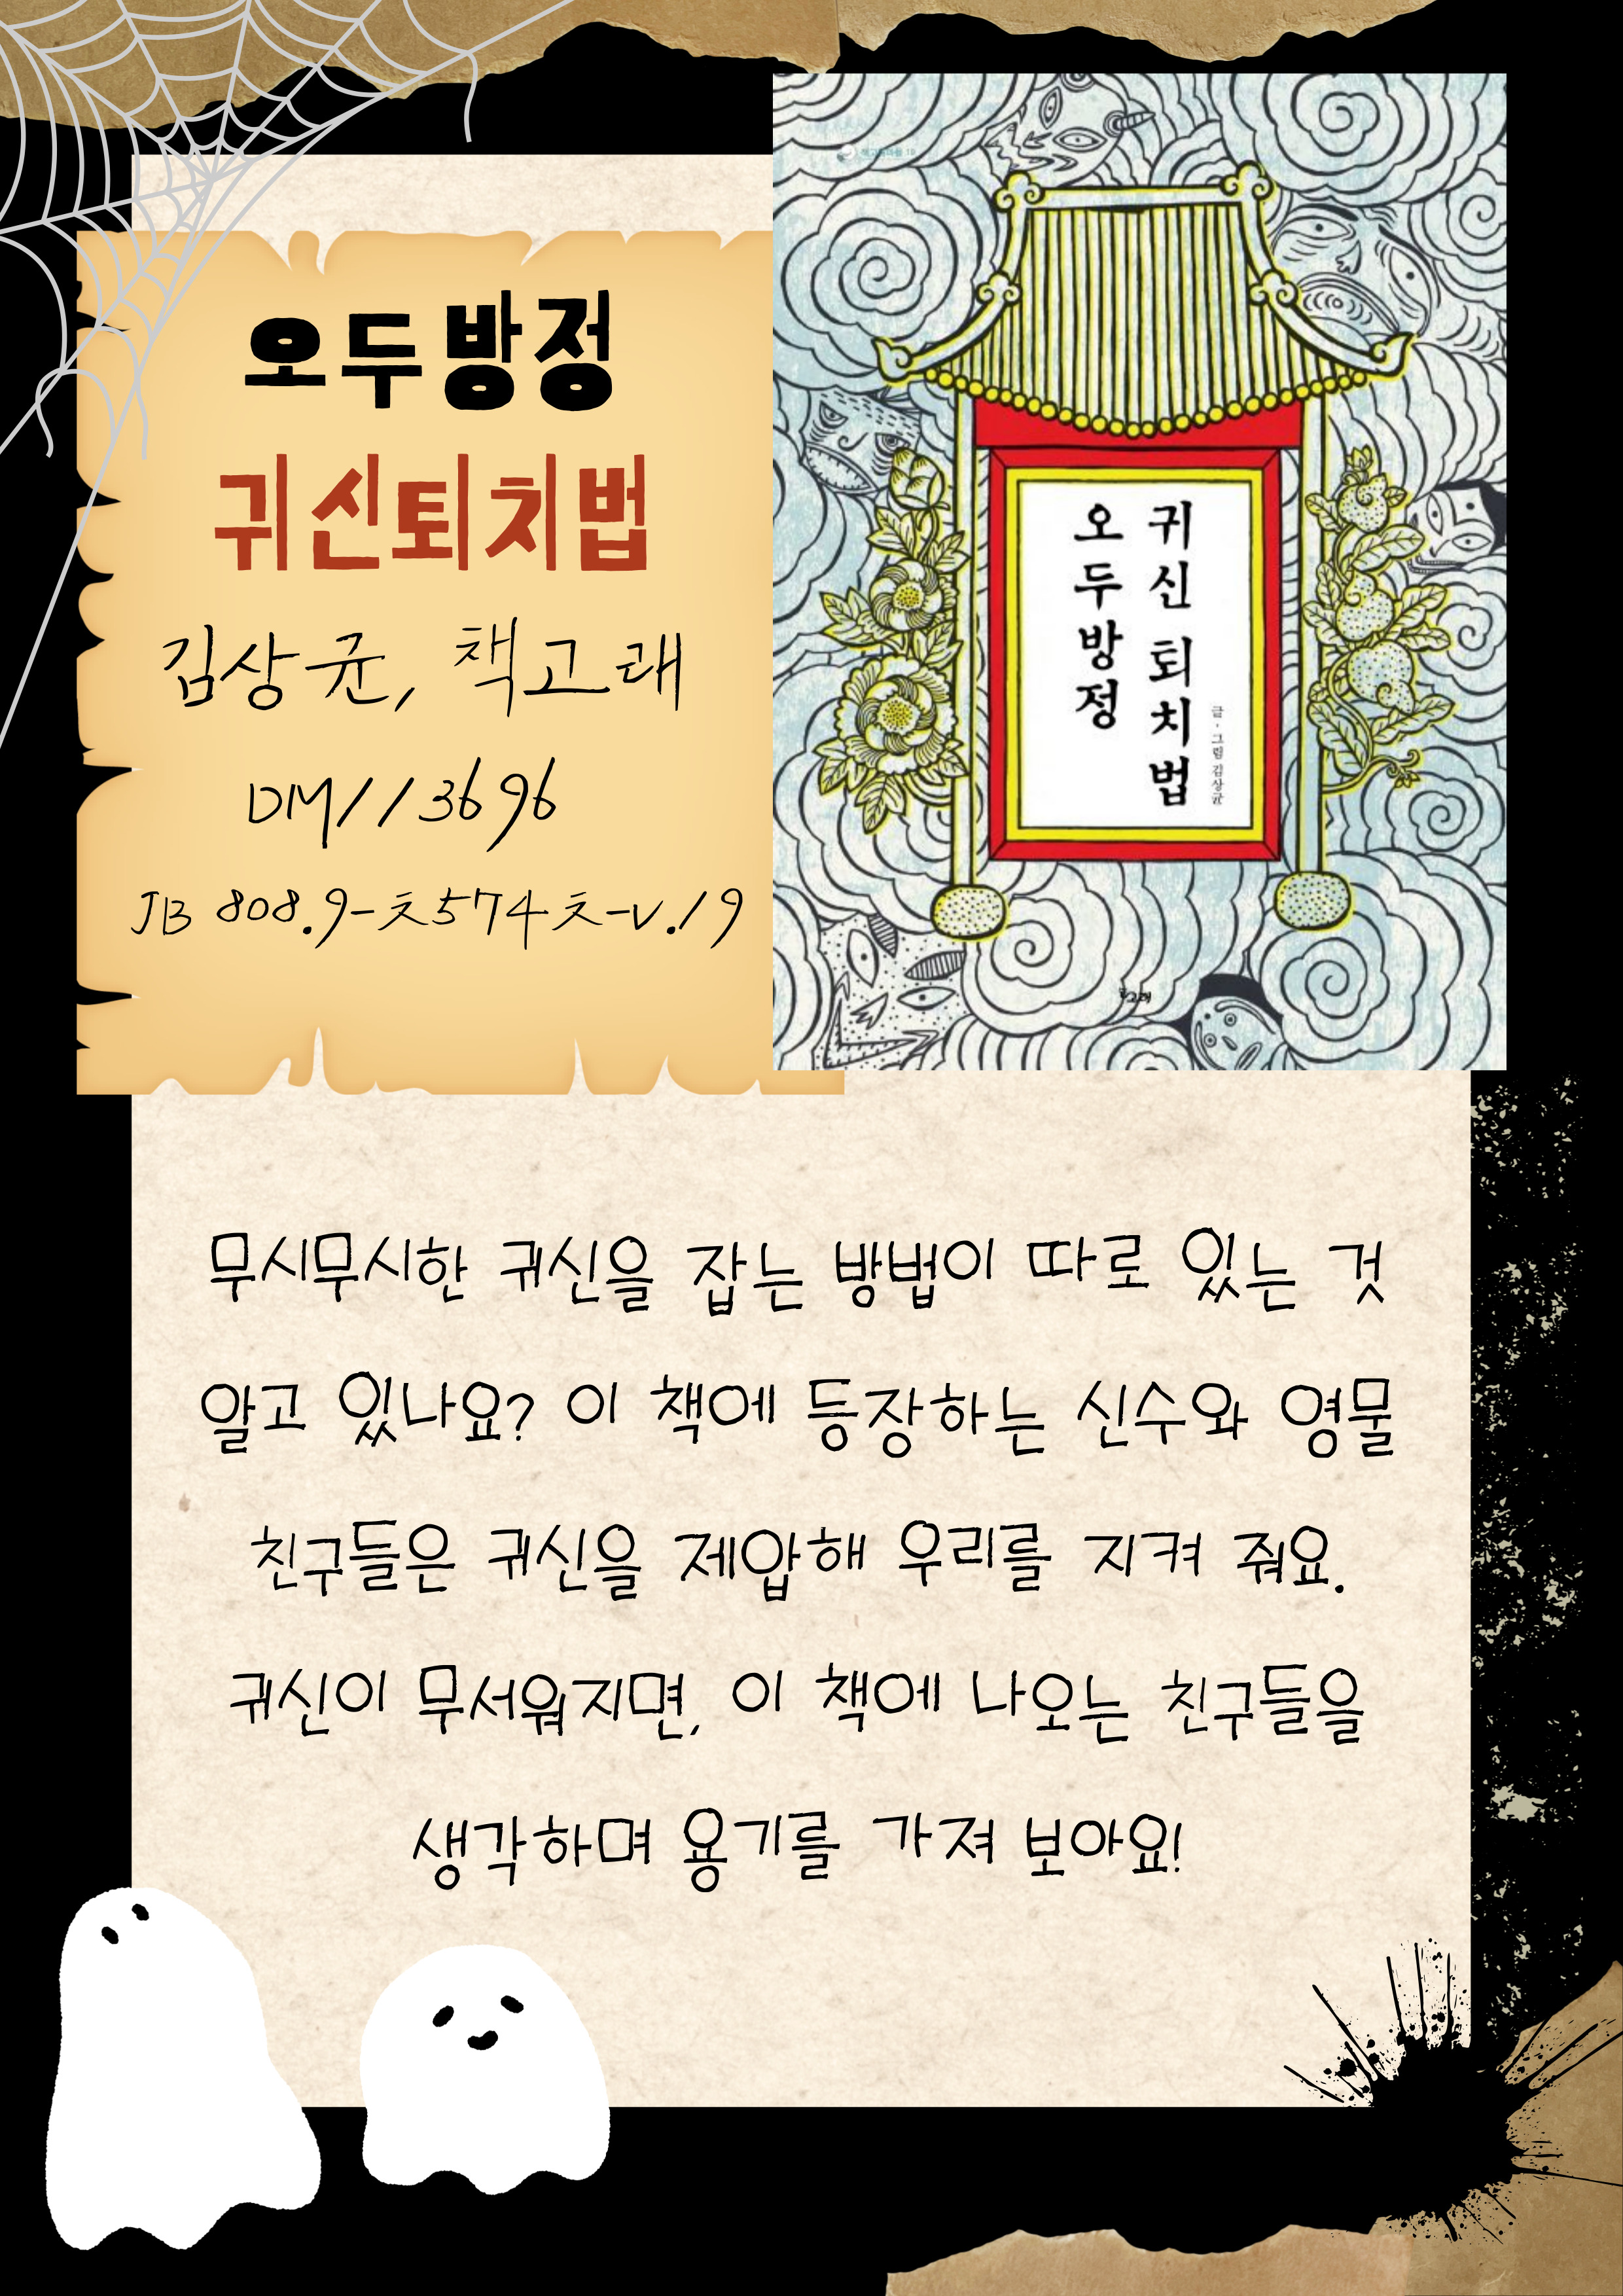 오두방정
귀신퇴치법
김상균, 책고래
DM113696
JB 808.9-ㅊ574ㅊ-v.19
귀신 퇴치법
오두방정
글·그림 김상균
책고래
무시무시한 귀신을 잡는 방법이 따로 있는 것
알고 있나요? 이 책에 등장하는 신수와 영물
친구들은 귀신을 제압해 우리를 지켜 줘요.
귀신이 무서워지면, 이 책에 나오는 친구들을
생각하며 용기를 가져 보아요!